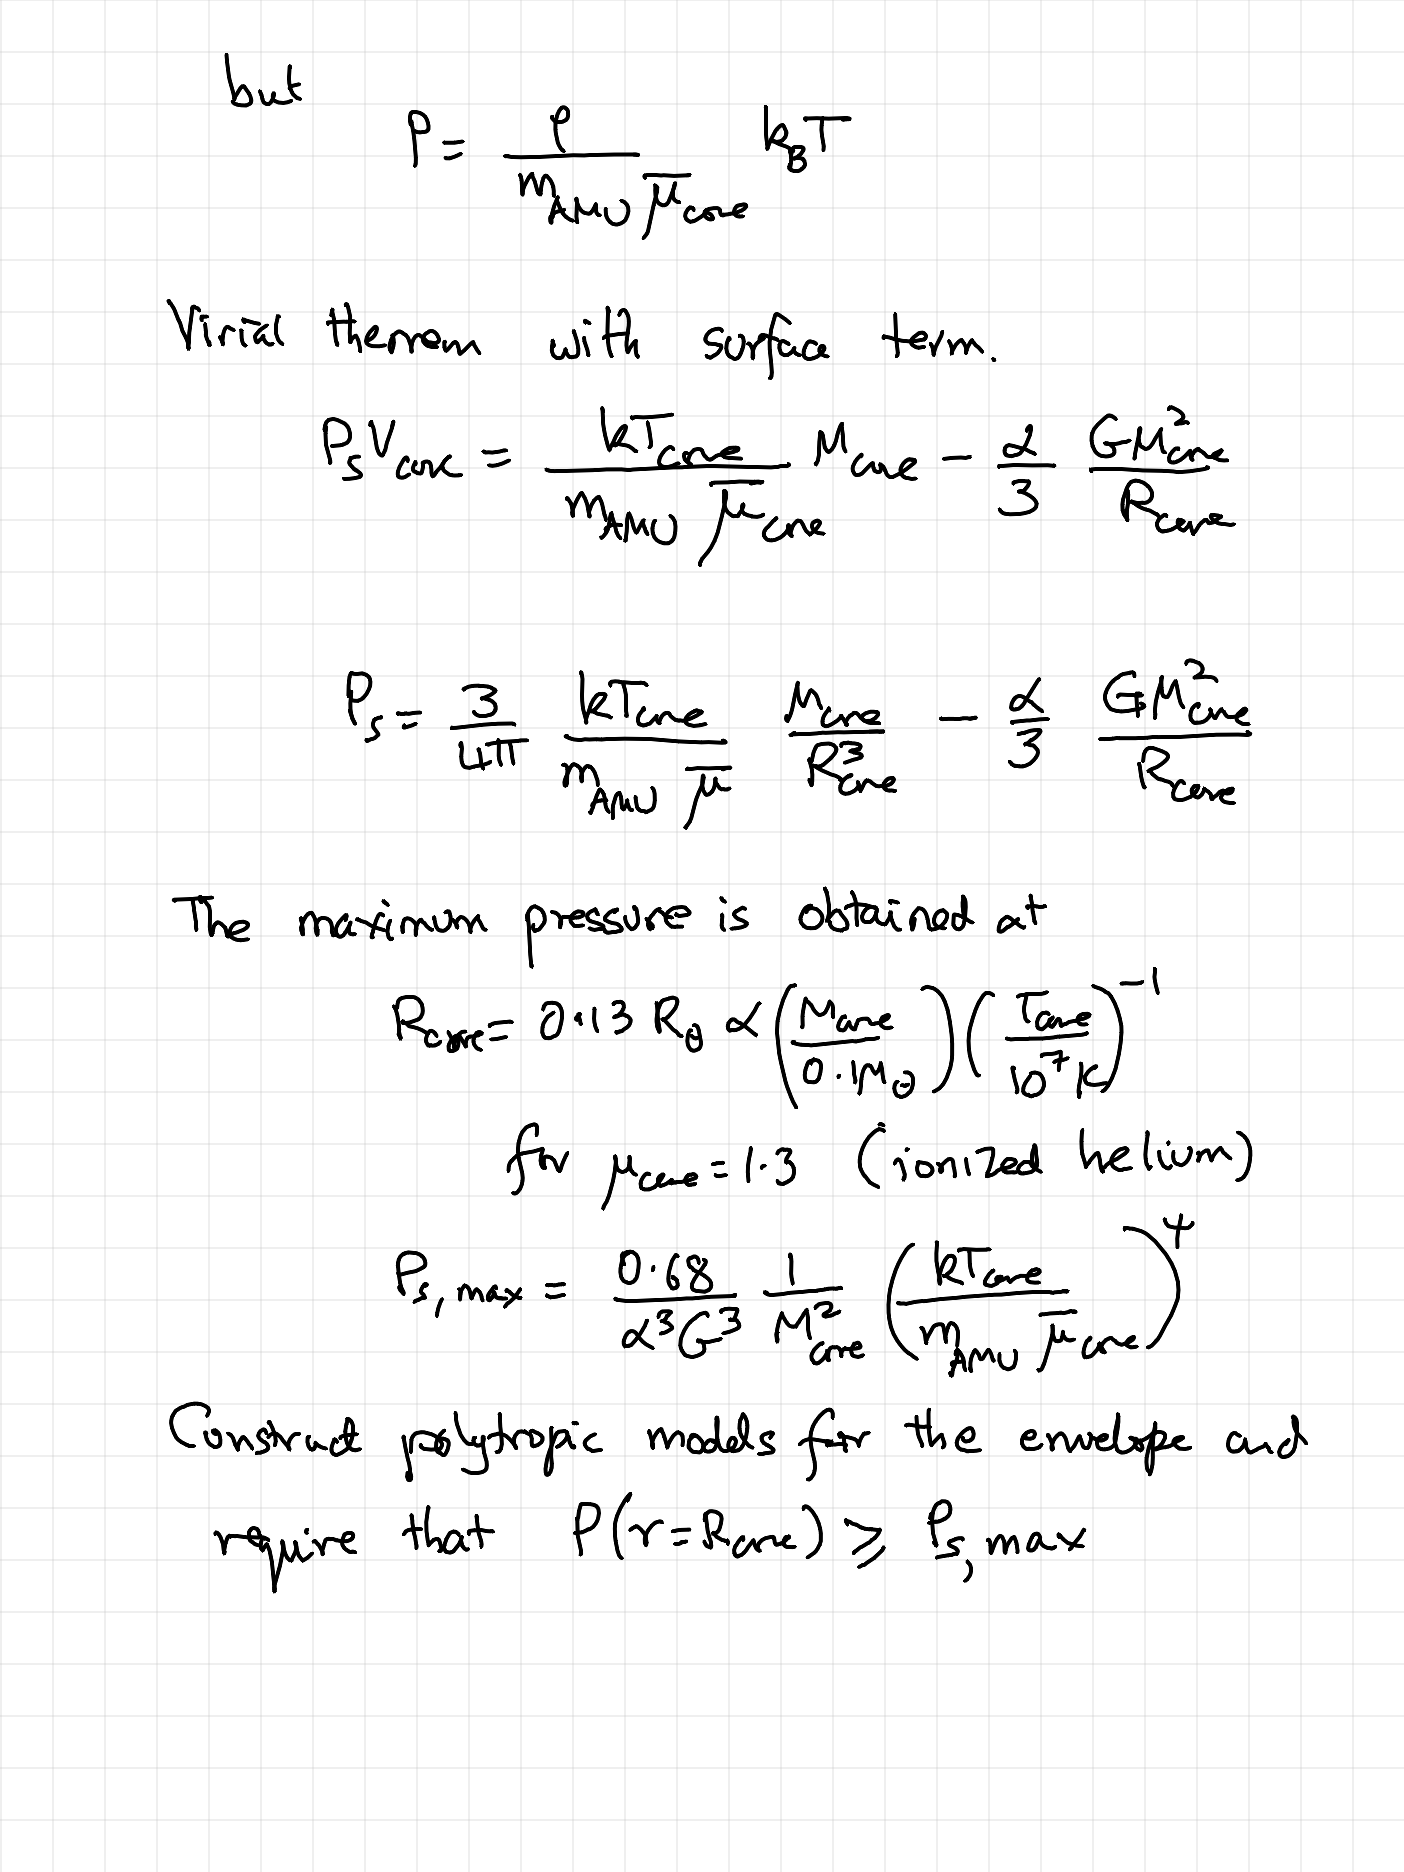 but
P = ρ / (m_AMU μ̄_core) k_B T
Virial theorem with surface term.
P_s V_core = kT_core / (m_AMU μ̄_core) M_core − α/3 GM²_core / R_core
P_s = 3/4π kT_core / (m_AMU μ̄) M_core / R³_core − α/3 GM²_core / R_core
The maximum pressure is obtained at
R_core = 0.13 R_⊙ α (M_core / 0.1M_⊙) (T_core / 10⁷ K)⁻¹
for μ_core = 1.3 (ionized helium)
P_s,max = 0.68 / (α³G³) 1 / M²_core (kT_core / (m_AMU μ̄_core))⁴
Construct polytropic models for the envelope and
require that P(r = R_core) ⩾ P_s,max